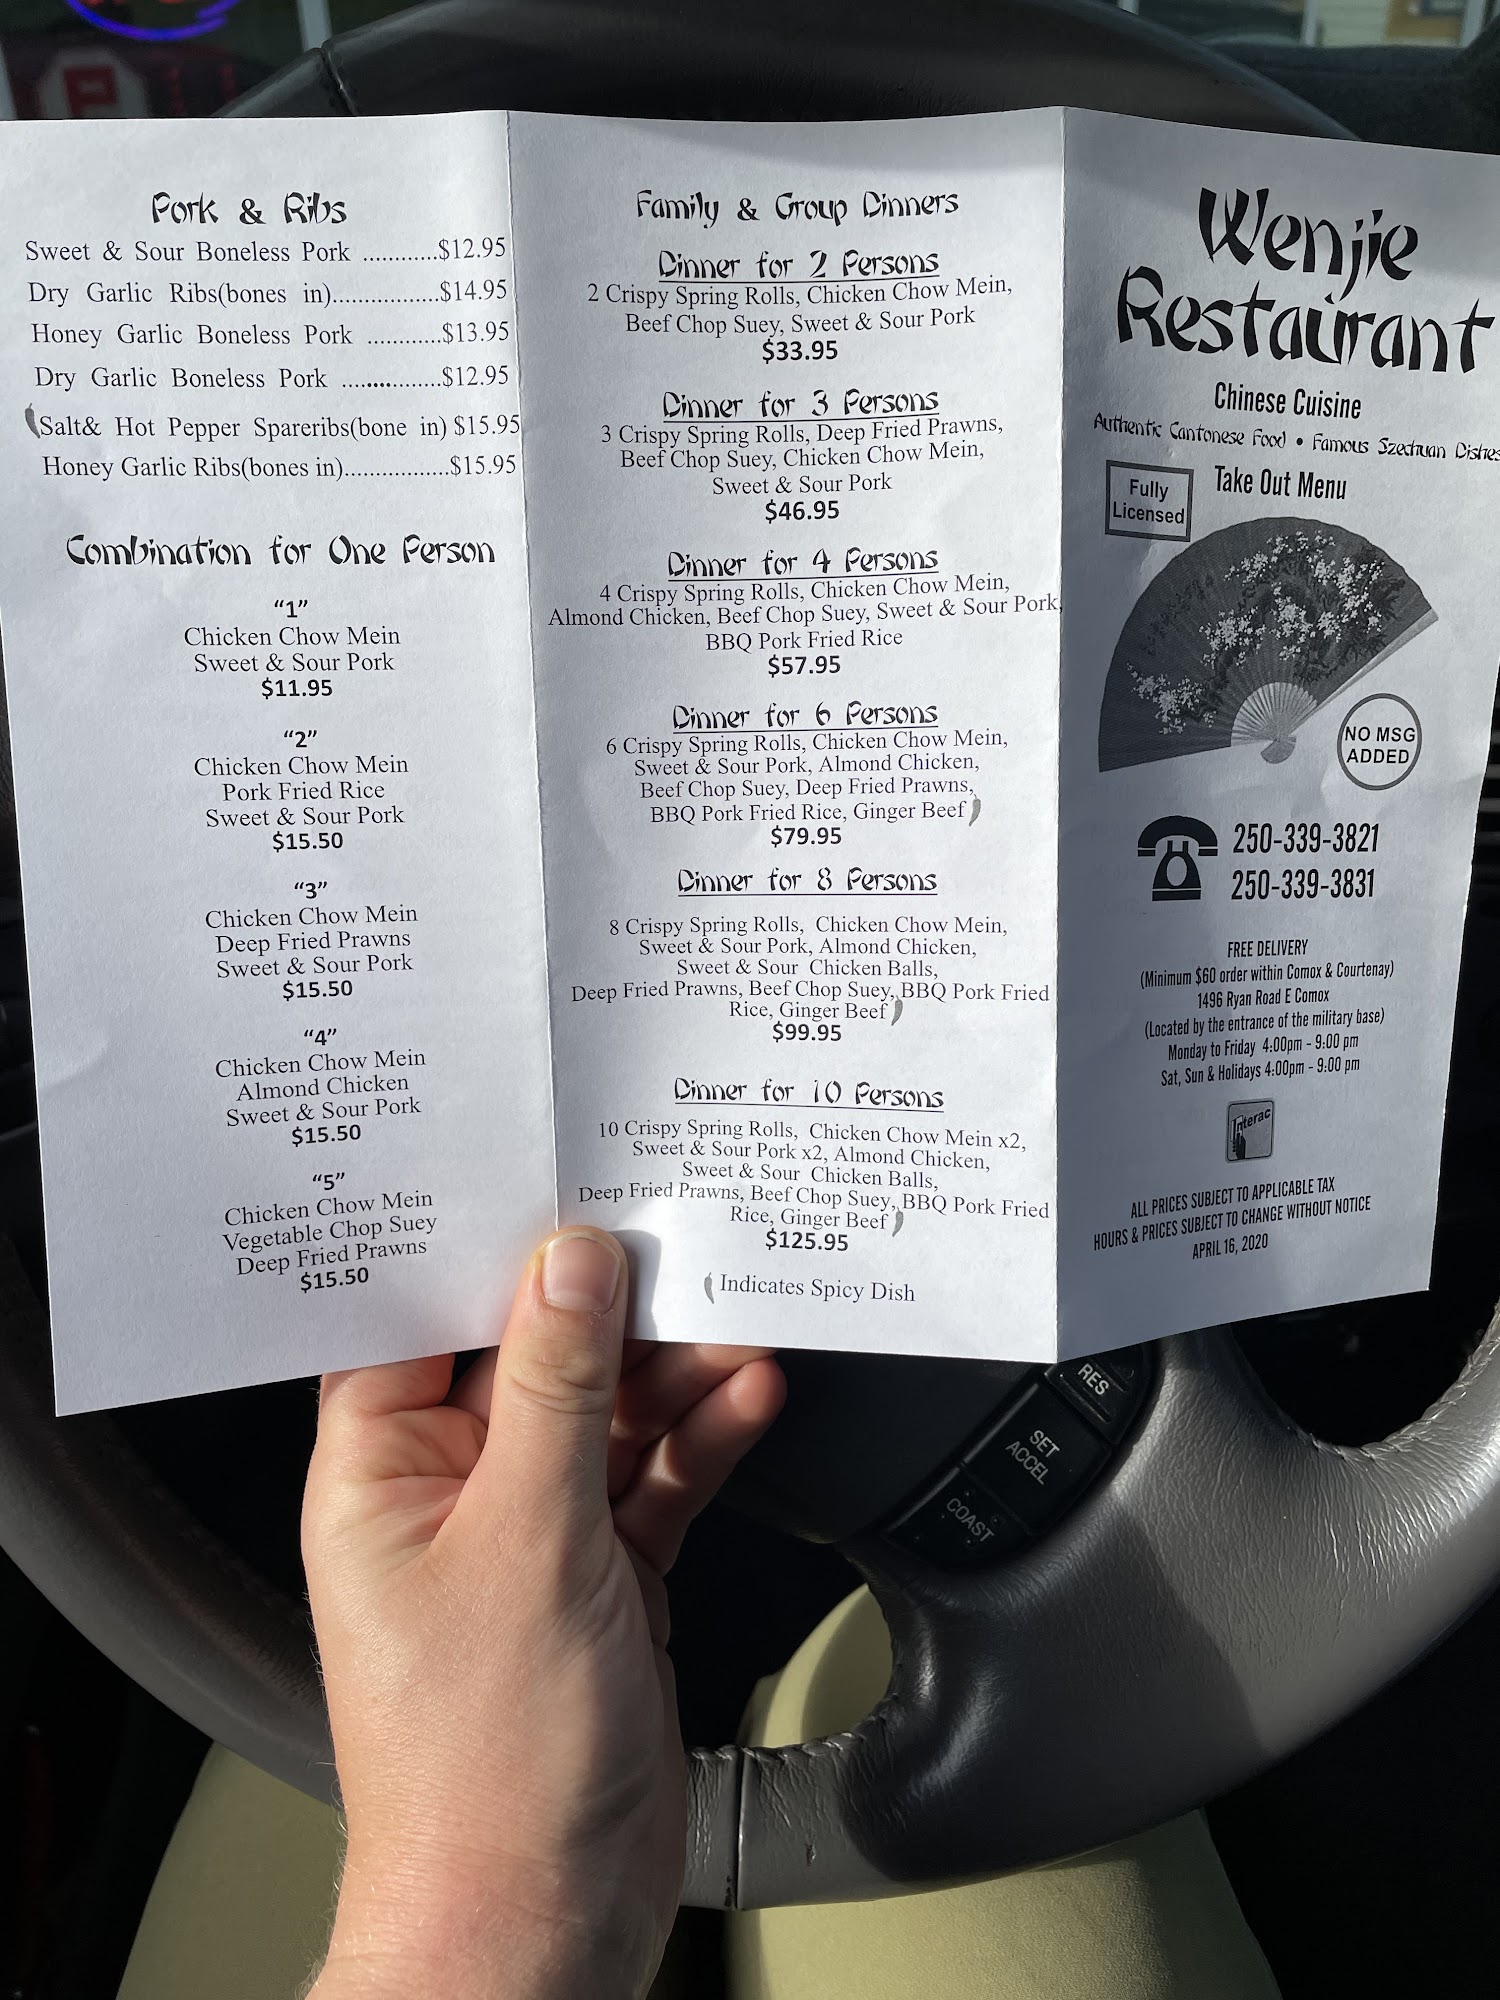 P
Pork & Ribs
Sweet & Sour Boneless Pork ............$12.95
Dry Garlic Ribs(bones in).................$14.95
Honey Garlic Boneless Pork ............$13.95
Dry Garlic Boneless Pork ................$12.95
Salt& Hot Pepper Spareribs(bone in) $15.95
Honey Garlic Ribs(bones in).................$15.95
Combination for One Person
“1”
Chicken Chow Mein
Sweet & Sour Pork
$11.95
“2”
Chicken Chow Mein
Pork Fried Rice
Sweet & Sour Pork
$15.50
“3”
Chicken Chow Mein
Deep Fried Prawns
Sweet & Sour Pork
$15.50
“4”
Chicken Chow Mein
Almond Chicken
Sweet & Sour Pork
$15.50
“5”
Chicken Chow Mein
Vegetable Chop Suey
Deep Fried Prawns
$15.50
Family & Group Dinners
Dinner for 2 Persons
2 Crispy Spring Rolls, Chicken Chow Mein,
Beef Chop Suey, Sweet & Sour Pork
$33.95
Dinner for 3 Persons
3 Crispy Spring Rolls, Deep Fried Prawns,
Beef Chop Suey, Chicken Chow Mein,
Sweet & Sour Pork
$46.95
Dinner for 4 Persons
4 Crispy Spring Rolls, Chicken Chow Mein,
Almond Chicken, Beef Chop Suey, Sweet & Sour Pork,
BBQ Pork Fried Rice
$57.95
Dinner for 6 Persons
6 Crispy Spring Rolls, Chicken Chow Mein,
Sweet & Sour Pork, Almond Chicken,
Beef Chop Suey, Deep Fried Prawns,
BBQ Pork Fried Rice, Ginger Beef
$79.95
Dinner for 8 Persons
8 Crispy Spring Rolls, Chicken Chow Mein,
Sweet & Sour Pork, Almond Chicken,
Sweet & Sour Chicken Balls,
Deep Fried Prawns, Beef Chop Suey, BBQ Pork Fried
Rice, Ginger Beef
$99.95
Dinner for 10 Persons
10 Crispy Spring Rolls, Chicken Chow Mein x2,
Sweet & Sour Pork x2, Almond Chicken,
Sweet & Sour Chicken Balls,
Deep Fried Prawns, Beef Chop Suey, BBQ Pork Fried
Rice, Ginger Beef
$125.95
Indicates Spicy Dish
Wenjie
Restaurant
Chinese Cuisine
Authentic Cantonese Food • Famous Szechuan Dishes
Take Out Menu
Fully
Licensed
NO MSG
ADDED
250-339-3821
250-339-3831
FREE DELIVERY
(Minimum $60 order within Comox & Courtenay)
1496 Ryan Road E Comox
(Located by the entrance of the military base)
Monday to Friday 4:00pm - 9:00 pm
Sat, Sun & Holidays 4:00pm - 9:00 pm
Interac
ALL PRICES SUBJECT TO APPLICABLE TAX
HOURS & PRICES SUBJECT TO CHANGE WITHOUT NOTICE
APRIL 16, 2020
RES
SET
ACCEL
COAST